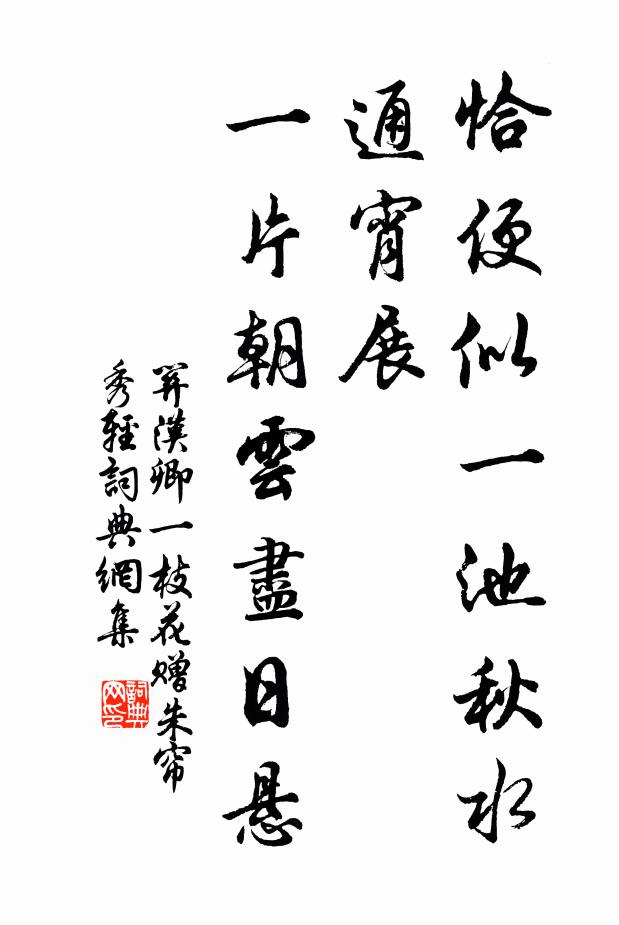 恰便似一池秋水
通宵展
一片朝雲盡日懸
關漢卿一枝花赠朱帘
秀輕詞典網集
詞典
网印